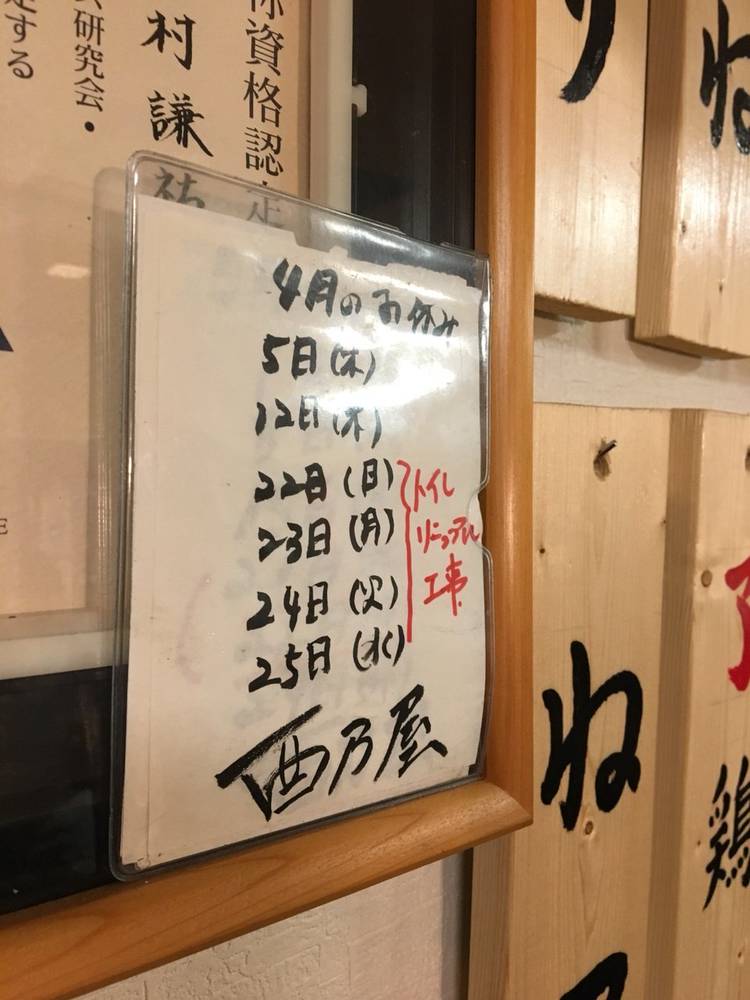 資格認定
村謙祐
研究会・
する
4月のお休み
5日(木)
12日(木)
22日(日)
23日(月)
24日(火)
25日(水)
トイレ
リニューアル
工事
西乃屋
り
ね
ね
鶏